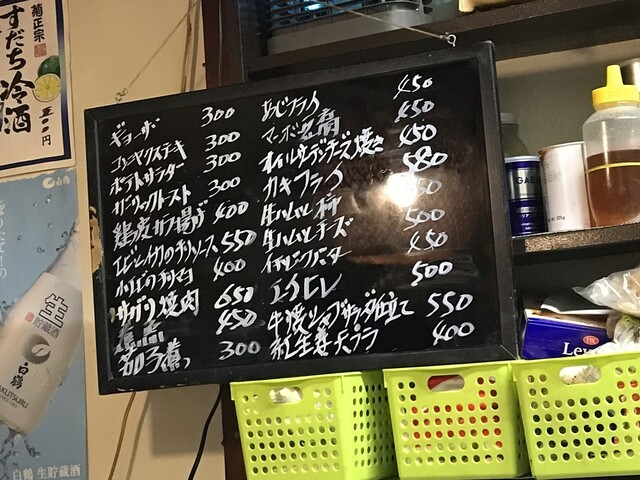 菊正宗
すだち冷酒
ギョーザ 300
コンニャクステキ 300
ポテトサラダー 300
ガーリックトスト 300
鶏皮カラ揚げ 400
エビとイカのチリソース 550
400
サガリ焼肉 650
450
茄子煮 300
あじフライ 450
マーボ豆腐 450
オイルサーデンチーズ焼き 450
カキフライ 580
生ハムと柿
生ハムとチーズ 500
450
エイヒレ 500
牛焼しゃぶサラダ仕立て 550
紅生姜天プラ 400
白鶴
生
貯蔵酒
白鶴
白鶴 生貯蔵酒